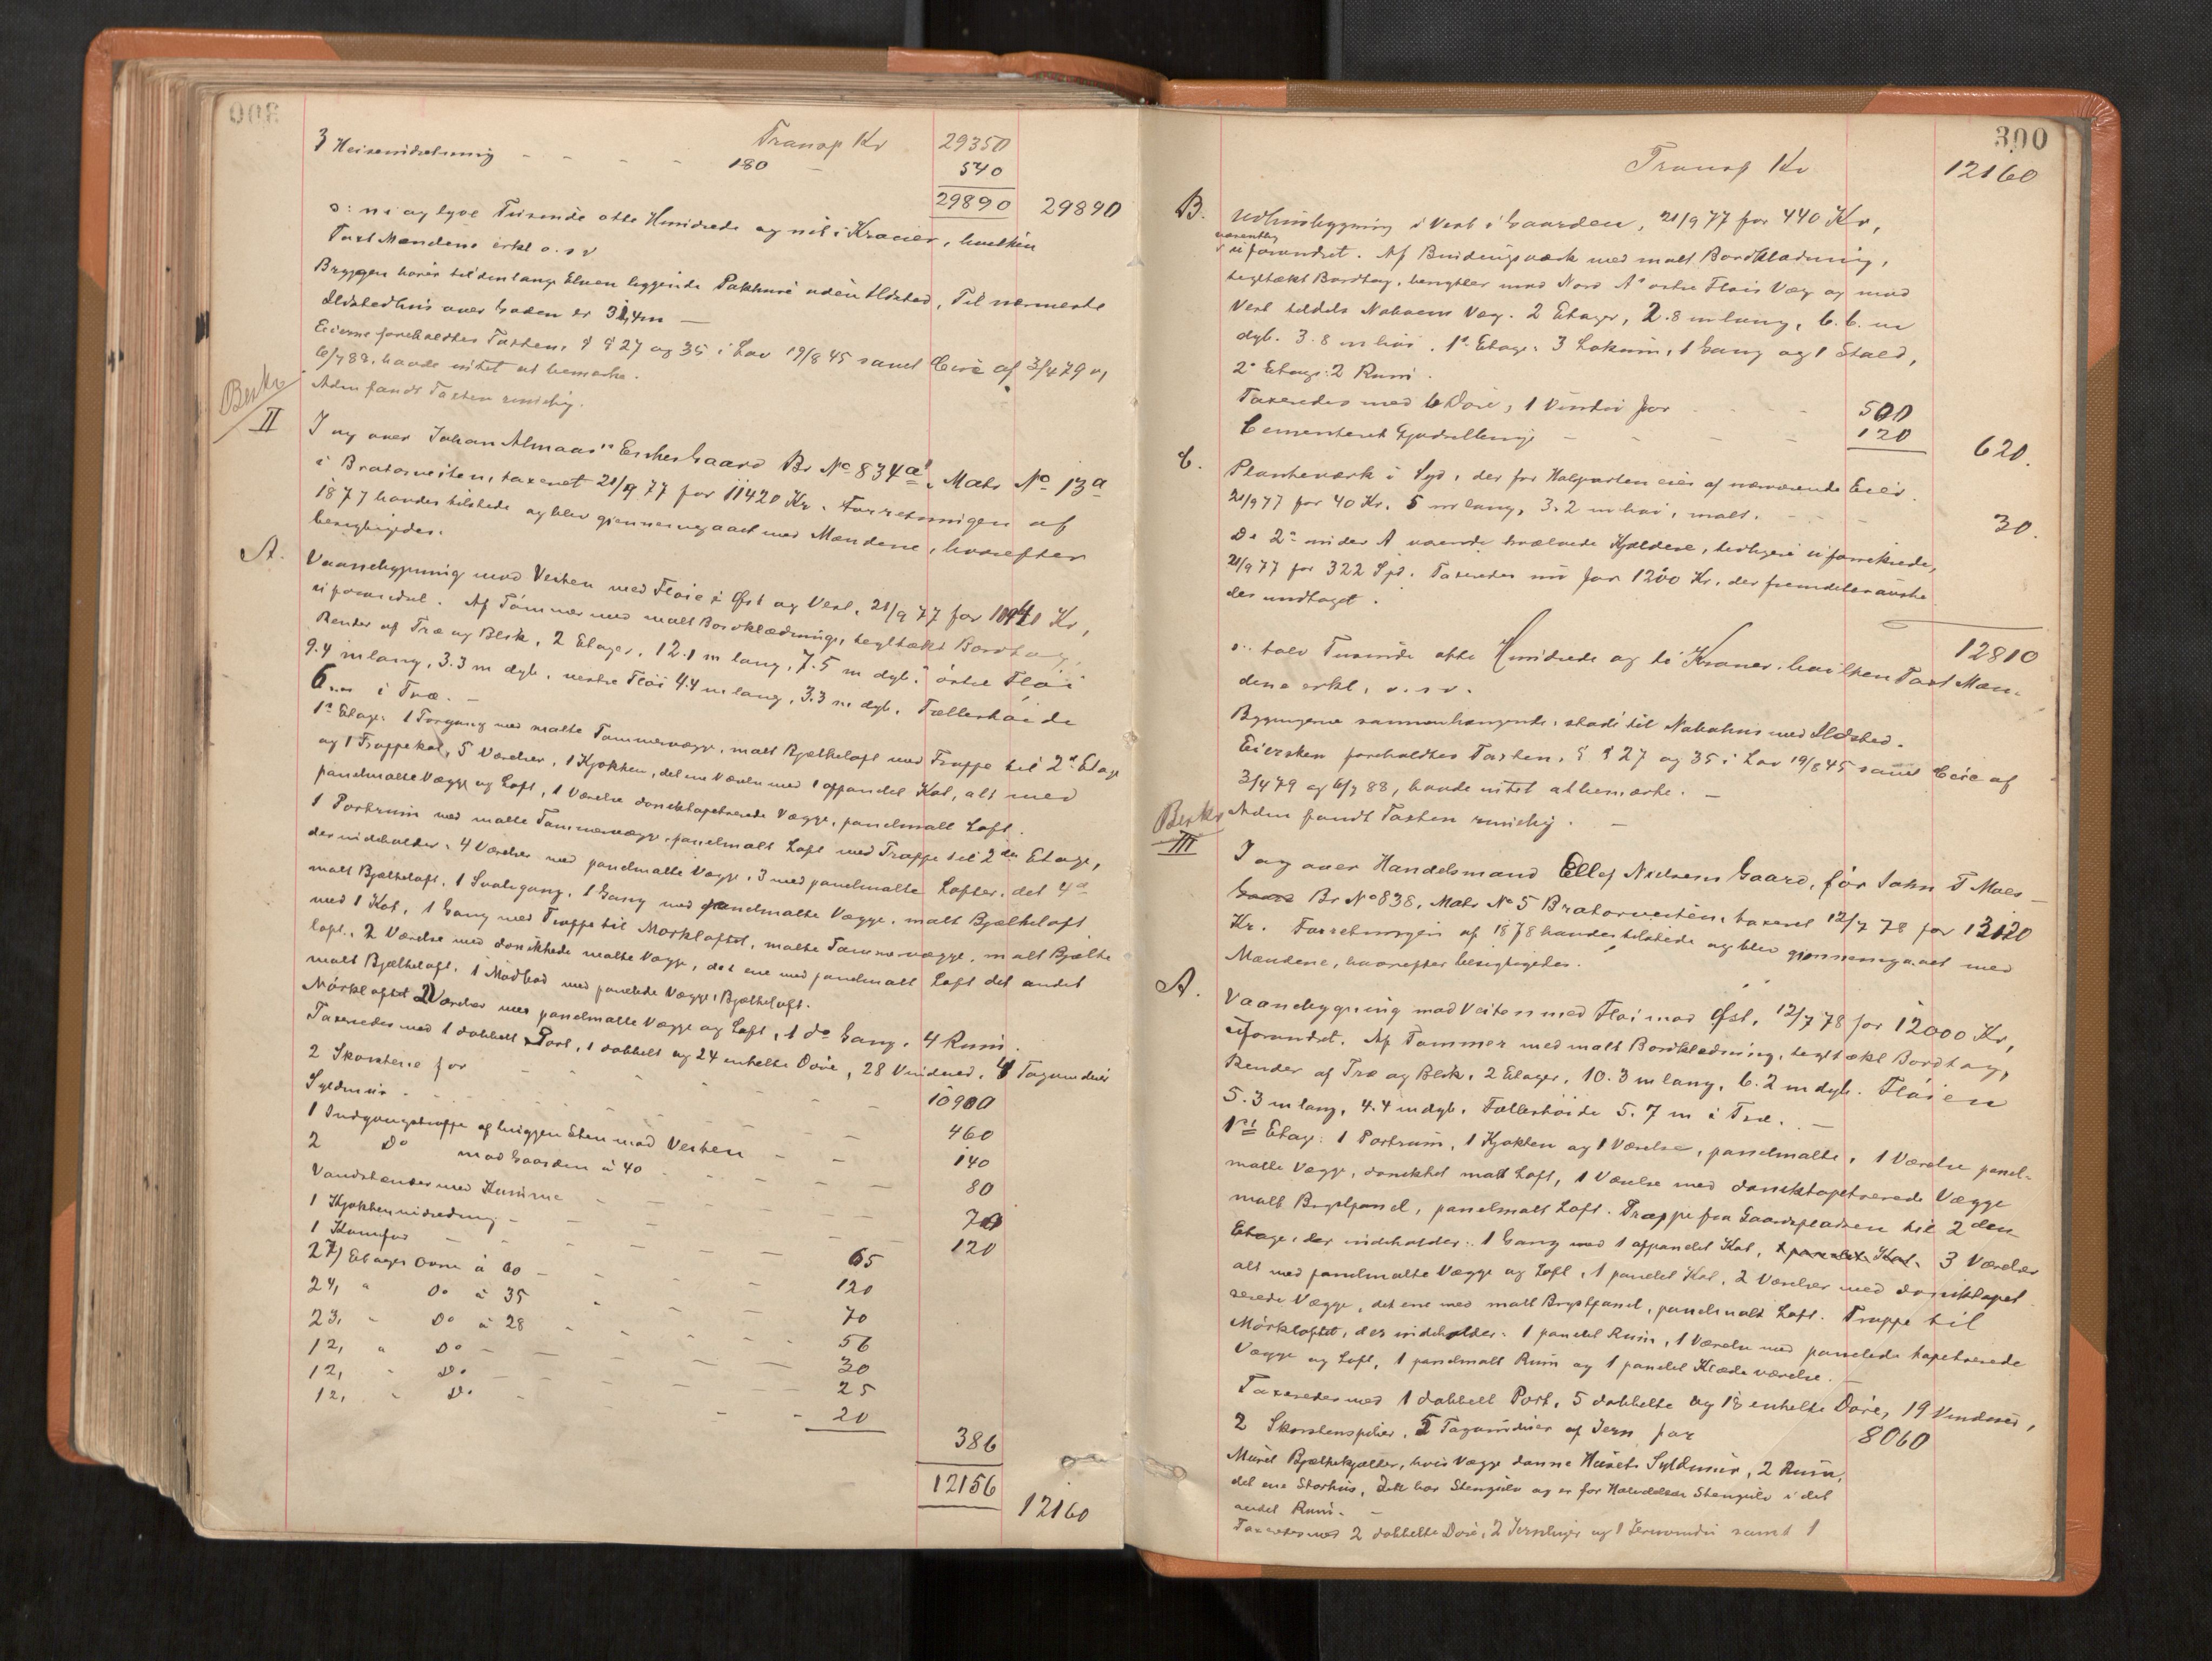 Transp Kr 29350
3 Heiseindretning - - - - 180 - 540
29890 29890
ɔ: ni og tyve Tusinde otte Hundrede og nitti Kroner, hvilken
Taxt Mændene erkl o. s v
Bryggen hører til den langs Elven liggende Pakhusrække uden Ildsted, Til nærmeste
Ildstedhus over Gaden er 31,4 m —
Eierne foreholdtes Taxten, § § 27 og 35 i Lov 19/8 45 samt Circ af 3/4 79 og
6/7 88, havde intet at bemærke.
Adm fandt Taxten rimelig.
Beskr
II
I og over Johan Almaas's Enkes Gaard Br No 834 a1, Matr No 13 a
i Bratørveiten, taxeret 21/9 77 for 11420 Kr. Forretningen af
1877 havdes tilstede og blev gjennemgaaet med Mændene, hvorefter
besigtigedes.
A. Vaanebygning mod Veiten med Fløie i Øst og Vest, 21/9 77 for 10940 Kr,
uforandret. Af Tømmer med malt Bordklædning, tegltækt Bordtag,
Render af Træ og Blik, 2 Etager, 12.1 m lang, 7.5 m dyb, østre Fløi
9.4 m lang, 3.3 m dyb, vestre Fløi 4.4 m lang, 3.3 m dyb, Fælleshøide
6 m i Træ. —
1e Etage: 1 Forgang med malte Tømmervægge, malt Bjelkeloft med Trappe til 2den Etage
og 1 Trappekot, 5 Værelser, 1 Kjøkken, det ene Værelse med 1 afpanelet Kot, alt med
panelmalte Vægge og Loft, 1 Værelse donsktapetserede Vægge, panelmalt Loft.
1 Portrum med malte Tømmervægge, panelmalt Loft med Trappe til 2den Etage,
der indeholder: 4 Værelser med panelmalte Vægge, 3 med panelmalte Lofter, det 4de
malt Bjelkeloft, 1 Svalegang, 1 Gang med panelmalte Vægge, malt Bjelkeloft
med 1 Kot, 1 Gang med Trappe til Mørkloftet, malte Tømmervægge, malt Bjelke
loft, 2 Værelse med donskkede malte Vægge, det ene med panelmalt Loft det andet
malt Bjelkeloft, 1 Madbod med panelede Vægge, Bjelkeloft.
Mørkloftet 2 Værelser med panelmalte Vægge og Loft, 1 do Gang, 4 Rum.
Taxeredes med 1 dobbelt Port, 1 dobbelt og 24 enkelte Døre, 28 Vinduer, 4 Tagvinduer
2 Skorstene for - - - - 10900
Syldmur - - - - 460
1 Indgangstrappe af huggen Sten mod Veiten - - 140
2 Do mod Gaarden à 40 - - - 80
Vandstænder med Kumme - - - 70
1 Kjøkkenindredning - - - 120
1 Komfur - - - 65
2 7/ Etages Ovne à 60 - - - 120
2 4, " Do à 35 - - - 70
2 3, " Do à 28 - - - 56
1 2, " Do - - - 30
1 2, " Do - - - 25
1 2, " Do - - - 20
386
12156
12160
300
Transp Kr 12160
B. Udhusbygning i Vest i Gaarden, 21/9 77 for 440 Kr,
væsentlig
uforandret. Af Bindingsværk med malt Bordklædning,
tegltækt Bordtag, benytter mod Nord A's østre Fløis Væg og mod
Vest tildels Naboens Væg. 2 Etager, 2.8 m lang, 6.6. m
dyb. 3.8 m høi. 1e Etage: 3 Lokum, 1 Gang og 1 Stald,
2e Etage: 2 Rum.
Taxeredes med 6 Døre, 1 Vindu for - - - 500
Cementeret Gjødselbinge - - - - 120 620.
C. Plankeværk i Syd, der for Halvparten eies af nærværende Eier.
21/9 77 for 40 Kr. 5 m lang, 3.2 m høi, malt. - - - 30.
De 2de under A værende hvælvede Kjældere, tidligere uforsikrede,
21/9 77 for 322 Spd. Taxeredes nu for 1200 Kr. der fremdeles ønske
des undtaget.
12810
ɔ: tolv Tusinde otte Hundrede og ti Kroner, hvilken Taxt Mæn-
dene erkl. o. s v.
Bygningerne sammenhængende, stødt til Nabohus med Ildsted.
Eiersken foreholdtes Taxten, § § 27 og 35 i Lov 19/8 45 samt Circ af
3/4 79 og 6/7 88, havde intet at bemærke. —
Adm fandt Taxten rimelig. —
Beskr
III
I og over Handelsmand Ellef Nielsens Gaard, før John T Moes
Gaard Br No 838, Matr No 5 Bratørveiten, taxeret 12/7 78 for 12120
Kr. Forretningen af 1878 havdes tilstede og blev gjennemgaaet med
Mændene, hvorefter besigtigedes.
A. Vaanebygning mod Veiten med Fløi mod Øst, 12/7 78 for 12000 Kr,
uforandret. Af Tømmer med malt Bordklædning, tegltækt Bordtag,
Render af Træ og Blik, 2 Etager, 10.3 m lang, 6.2 m dyb. Fløien
5.3 m lang, 4.4 m dyb. Fælleshøide 5.7 m i Træ. —
1ste Etage: 1 Portrum, 1 Kjøkken og 1 Værelse, panelmalte, 1 Værelse panel-
malte Vægge, donskket malt Loft, 1 Værelse med donsktapetserede Vægge
malt Brystpanel, panelmalt Loft. Trappe fra Gaardspladsen til 2den
Etage, der indeholder: 1 Gang med 1 afpanelet Kot, 1 panelet Kot. 3 Værelser
alt med panelmalte Vægge og Loft, 1 panelet Kot, 2 Værelser med donsktapet
serede Vægge, det ene med malt Brystpanel, panelmalt Loft. Trappe til
Mørkloftet, der indeholder: 1 panelet Rum, 1 Værelse med panelede tapetserede
Vægge og Loft, 1 panelmalt Rum og 1 panelet Klædeværelse. —
Taxeredes med 1 dobbelt Port, 5 dobbelte og 18 enkelte Døre, 19 Vinduer,
2 Skorstenspiber, 5 Tagvinduer af Jern for 8060
Muret Bjelkekjælder, hvis Vægge danne Husets Syldmur, 2 Rum,
det ene Storhus, dette har Stengulv og er for Halvdelen Stengulv i det
andet Rum. —
Taxeredes med 2 dobbelte Døre, 2 Jernluger og 1 Jernvindu samt 1